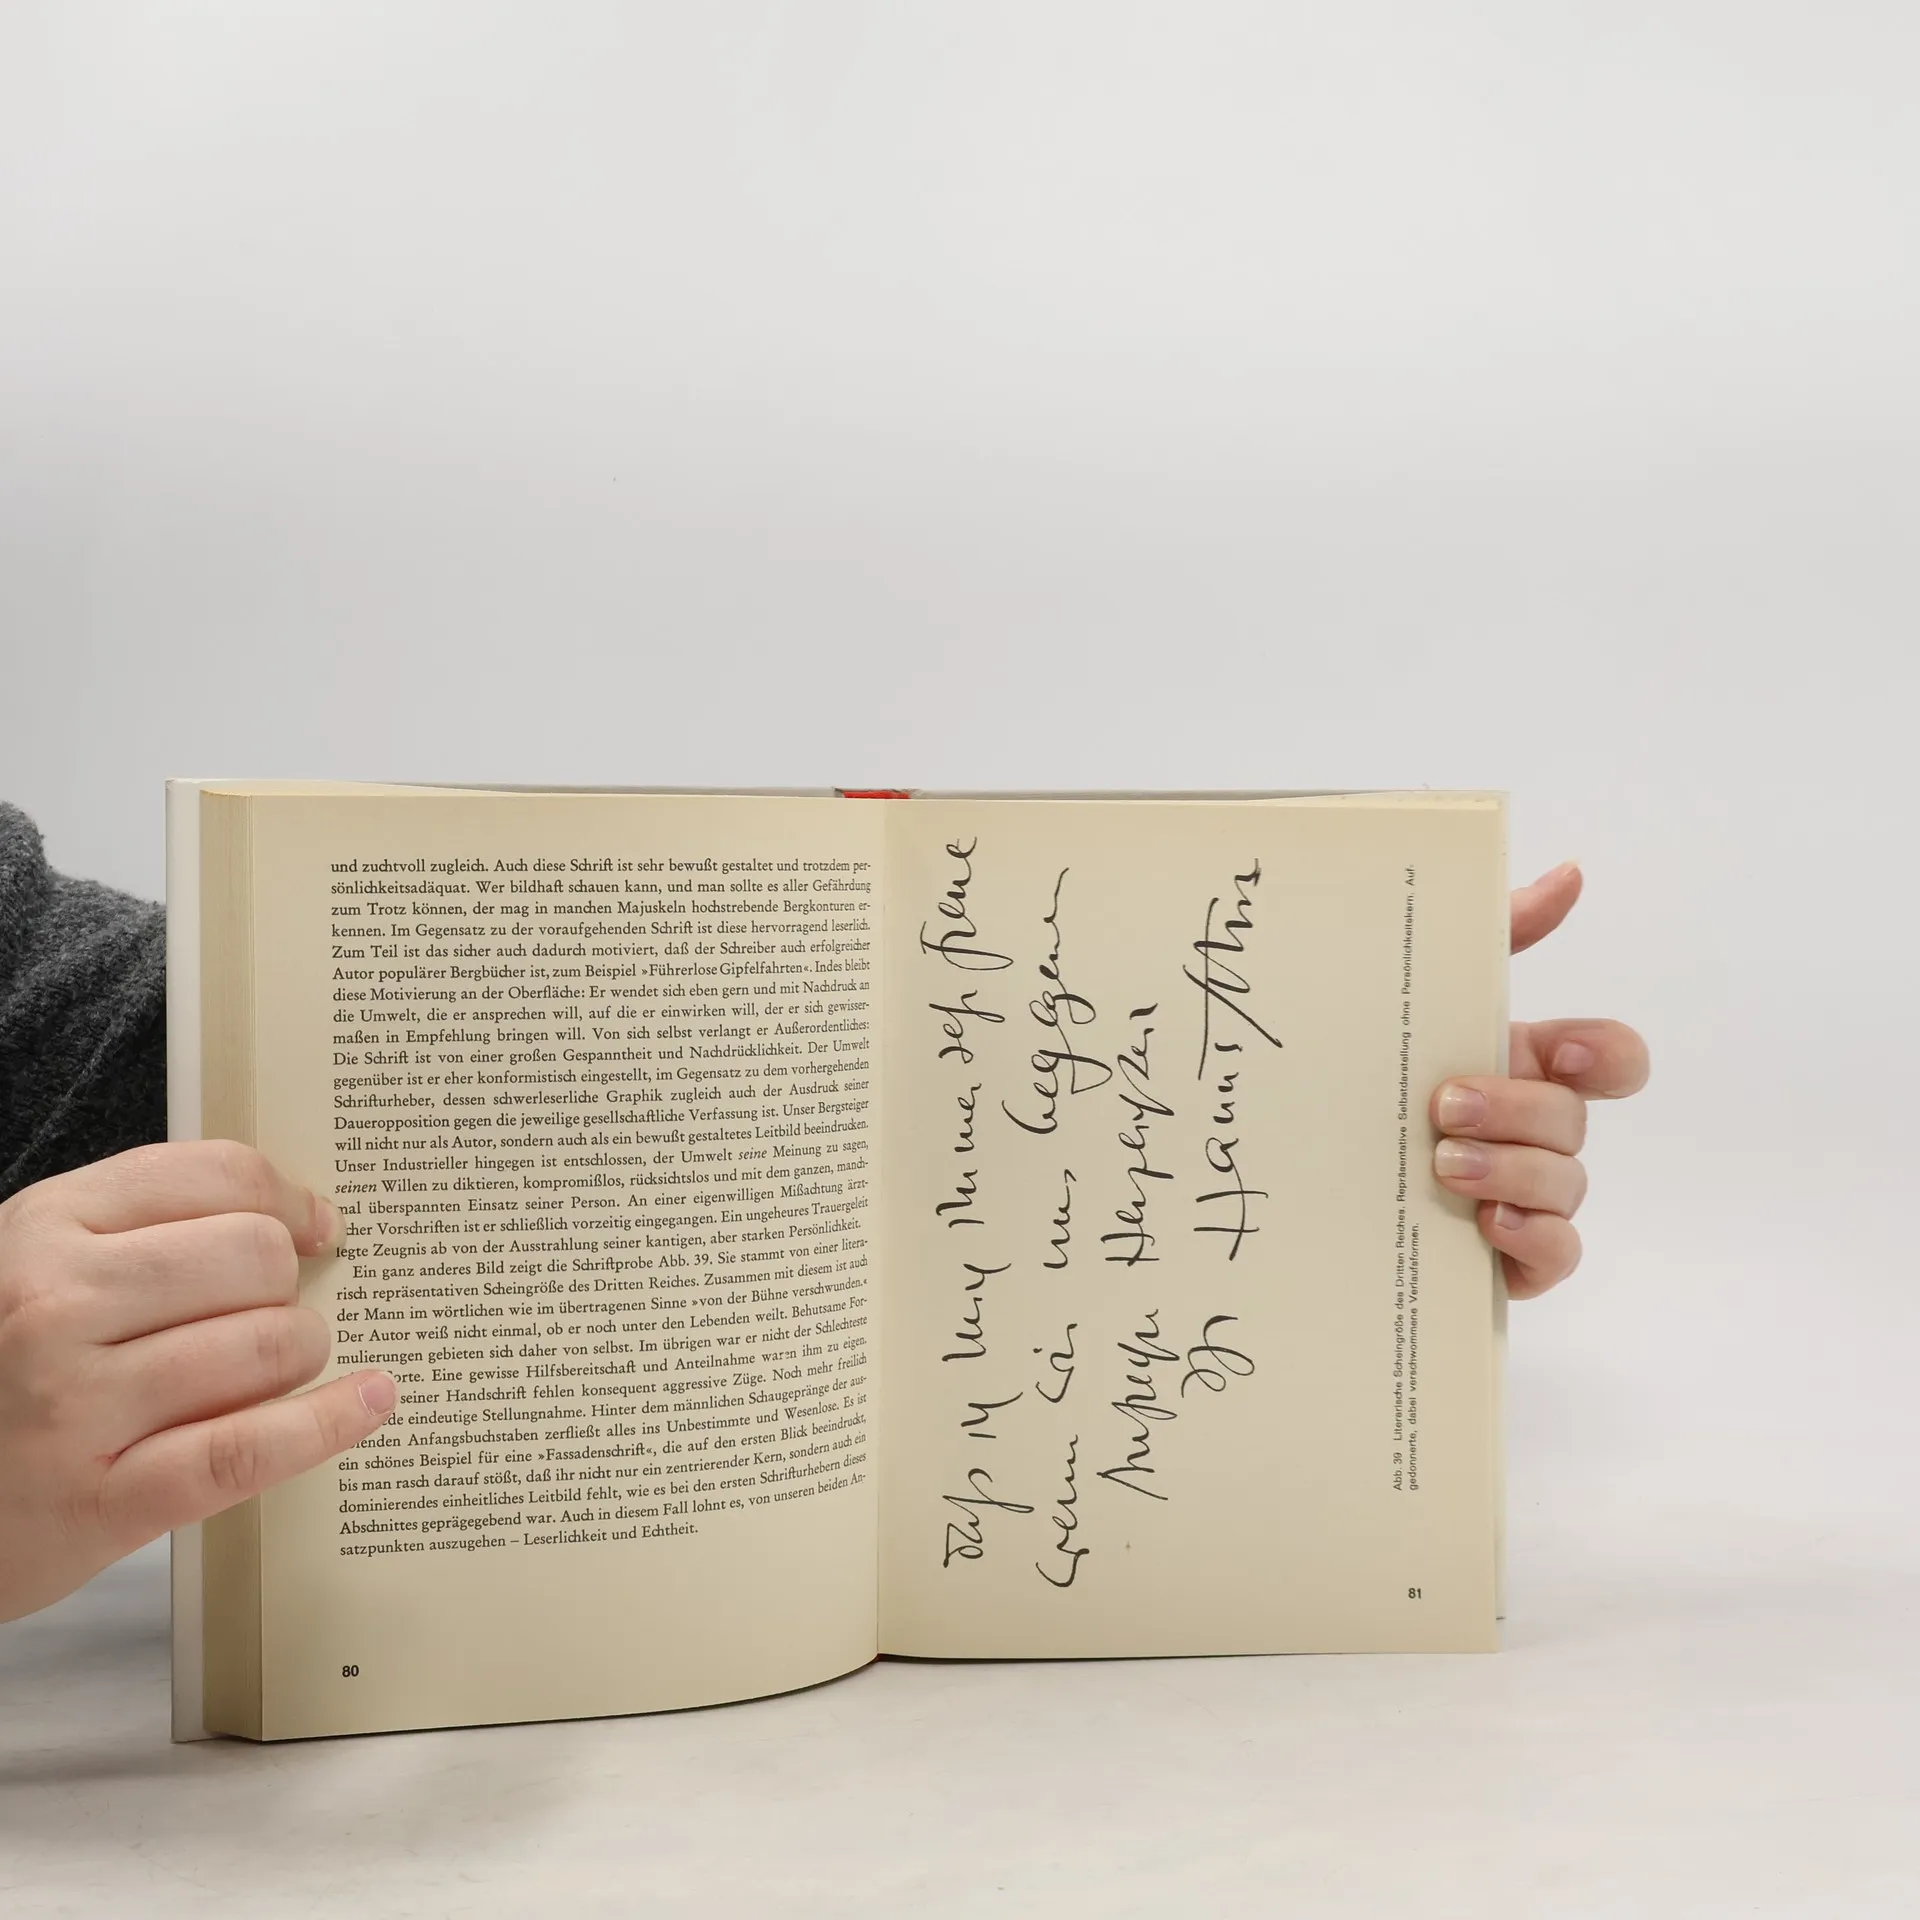 und zuchtvoll zugleich. Auch diese Schrift ist sehr bewußt gestaltet und trotzdem per-
sönlichkeitsadäquat. Wer bildhaft schauen kann, und man sollte es aller Gefährdung
zum Trotz können, der mag in manchen Majuskeln hochstrebende Bergkonturen er-
kennen. Im Gegensatz zu der voraufgehenden Schrift ist diese hervorragend leserlich.
Zum Teil ist das sicher auch dadurch motiviert, daß der Schreiber auch erfolgreicher
Autor populärer Bergbücher ist, zum Beispiel »Führerlose Gipfelfahrten«. Indes bleibt
diese Motivierung an der Oberfläche: Er wendet sich eben gern und mit Nachdruck an
die Umwelt, die er ansprechen will, auf die er einwirken will, der er sich gewisser-
maßen in Empfehlung bringen will. Von sich selbst verlangt er Außerordentliches:
Die Schrift ist von einer großen Gespanntheit und Nachdrücklichkeit. Der Umwelt
gegenüber ist er eher konformistisch eingestellt, im Gegensatz zu dem vorhergehenden
Schrifturheber, dessen schwerleserliche Graphik zugleich auch der Ausdruck seiner
Daueropposition gegen die jeweilige gesellschaftliche Verfassung ist. Unser Bergsteiger
will nicht nur als Autor, sondern auch als ein bewußt gestaltetes Leitbild beeindrucken.
Unser Industrieller hingegen ist entschlossen, der Umwelt seine Meinung zu sagen,
seinen Willen zu diktieren, kompromißlos, rücksichtslos und mit dem ganzen, manch-
mal überspannten Einsatz seiner Person. An einer eigenwilligen Mißachtung ärzt-
cher Vorschriften ist er schließlich vorzeitig eingegangen. Ein ungeheures Trauergeleit
legte Zeugnis ab von der Ausstrahlung seiner kantigen, aber starken Persönlichkeit.
Ein ganz anderes Bild zeigt die Schriftprobe Abb. 39. Sie stammt von einer litera-
risch repräsentativen Scheingröße des Dritten Reiches. Zusammen mit diesem ist auch
der Mann im wörtlichen wie im übertragenen Sinne »von der Bühne verschwunden.«
Der Autor weiß nicht einmal, ob er noch unter den Lebenden weilt. Behutsame For-
mulierungen gebieten sich daher von selbst. Im übrigen war er nicht der Schlechteste
orte. Eine gewisse Hilfsbereitschaft und Anteilnahme waren ihm zu eigen.
seiner Handschrift fehlen konsequent aggressive Züge. Noch mehr freilich
de eindeutige Stellungnahme. Hinter dem männlichen Schaugepränge der aus-
enden Anfangsbuchstaben zerfließt alles ins Unbestimmte und Wesenlose. Es ist
ein schönes Beispiel für eine »Fassadenschrift«, die auf den ersten Blick beeindruckt,
bis man rasch darauf stößt, daß ihr nicht nur ein zentrierender Kern, sondern auch ein
dominierendes einheitliches Leitbild fehlt, wie es bei den ersten Schrifturhebern dieses
Abschnittes geprägegebend war. Auch in diesem Fall lohnt es, von unseren beiden An-
satzpunkten auszugehen – Leserlichkeit und Echtheit.
80
Daß ich mich immer sehr freue
wenn wir uns begegnen
Herzlichst
Ihr Hanns
Abb. 39 Literarische Scheingröße des Dritten Reiches. Repräsentative Selbstdarstellung ohne Persönlichkeitskern. Auf-
gedonnerte, dabei verschwommene Verlaufsformen.
81